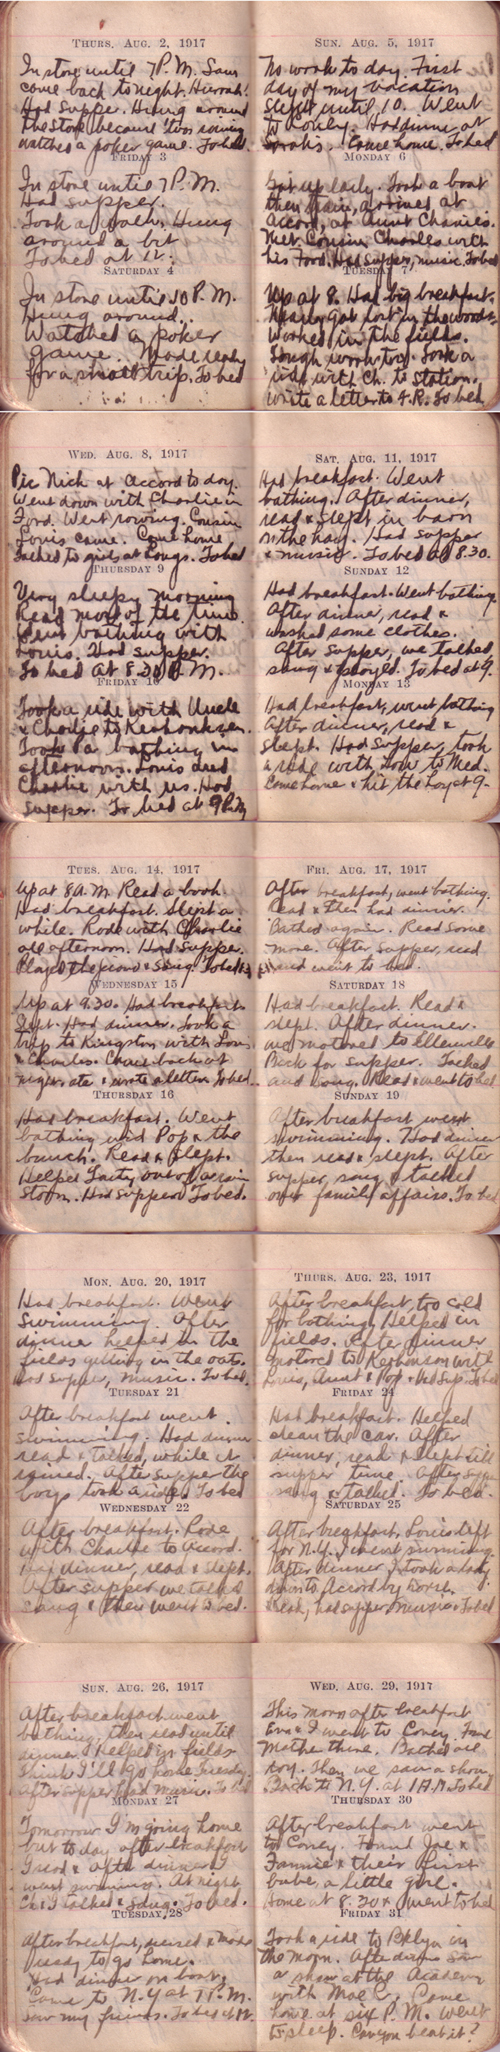 THURS. AUG. 2, 1917
In store until 7 P.M. Sam
come back to night. Hurrah!
Had supper. Hung around
the store because 'twas raining
watched a poker game. To bed.
FRIDAY 3
In store until 7 P.M.
Had supper.
Took a walk. Hung
around a bit
To bed at 12.
SATURDAY 4
In store until 10 P.M.
Hung around.
Watched a poker
game. Made ready
for a small trip. To bed
SUN. AUG. 5, 1917
No work to day. First
day of my vacation
slept until 10. Went
to Coney. Had dinner at
Sarah's. Came home. To bed
MONDAY 6
Got up early. Took a boat
then train, arrived at
Accord, at Aunt Channies.
Met Cousin Charles with
his Ford. Had supper, music. To bed
TUESDAY 7
Up at 8. Had big breakfast.
Nearly got lost in the woods.
Worked in the fields.
Tough work too. Took a
ride with Ch. to station.
Write a letter to F.R. To bed
WED. AUG. 8, 1917
Pic Nick at Accord to day.
Went down with Charlie in
Ford. Went rowing. Cousin
Louis came. Come home,
Talked to girls at Longs. To bed
THURSDAY 9
Very sleepy morning
Read most of the time.
Went bathing with
Louis. Had supper.
To bed at 8.30 P.M.
FRIDAY 10
Took a ride with Uncle
& Charlie to Kerhonksen.
Took a bathing in
afternoon. Louis and
Charlie with us. Had
supper. To bed at 9 P.M.
SAT. AUG. 11, 1917
Had breakfast. Went
bathing. After dinner,
read & slept in barn
in the hay. Had supper
& music. To bed at 8.30.
SUNDAY 12
Had breakfast. Went bathing.
After dinner, read &
washed some clothes.
After supper, we talked,
sang & played. To bed at 9.
MONDAY 13
Had breakfast, went bathing
After dinner, read &
slept. Had supper, took
a ride with to Med.
Come home & hit the hay at 9-
TUES. AUG. 14, 1917
Up at 8 A.M. Read a book.
Had breakfast. Slept a
while. Rode with Charlie
all afternoon. Had supper.
Played the piano & sang. To bed
WEDNESDAY 15
Up at 9.30. Had breakfast.
Slept. Had dinner. Took a
trip to Kingston with Louis
& Charles. Came back at
night, ate & wrote a letter. To bed.
THURSDAY 16
Had breakfast. Went
bathing with Pop & the
bunch. Read & slept.
Helped out of a rain
storm. Had supper. To bed.
FRI. AUG. 17, 1917
After breakfast, went bathing.
Read & then had dinner.
Bathed again. Read some
more. After supper, read
and went to bed.
SATURDAY 18
Had breakfast. Read &
slept. After dinner.
we motored to Ellenville
Back for supper. Talked
and sang. Read & went to bed
SUNDAY 19
After breakfast went
swimming. Had dinner
then read & slept. After
supper, sang & talked
over family affairs. To bed
MON. AUG. 20, 1917
Had breakfast. Went
swimming. After
dinner helped in the
fields getting in the oats.
Had supper, music. To bed.
TUESDAY 21
After breakfast went
swimming. Had dinner
read & talked, while it
rained. After supper the
boys took a ride. To bed
WEDNESDAY 22
After breakfast. Rode
with Charlie to Accord.
Had dinner, read & slept.
After supper we talked
sang & then went to bed.
THURS. AUG. 23, 1917
After breakfast, too cold
for bathing. Helped in
fields. After dinner
motored to Kerhonkson with
Louis, Aunt & Pop. Had sup. To bed
FRIDAY 24
Had breakfast. Helped
clean the car. After
dinner, read & slept till
supper time. After supper
sang & talked. To bed.
SATURDAY 25
After breakfast, Louis left
for N.Y. I went swimming.
After dinner I took a lady
down to Accord by horse.
Read, had supper, music & To bed
SUN. AUG. 26, 1917
After breakfast went
bathing, then read until
dinner & helped in fields
think I'll go home Tuesday.
After supper had music. To bed
MONDAY 27
Tomorrow I'm going home
but to day after breakfast
I read & after dinner I
went swimming. At night
Ch. & I talked & sang. To bed.
TUESDAY, 28
After breakfast, & made
ready to go home.
Had dinner on boat,
Come to N.Y at 7 P.M.
saw my friends. To bed at 12.
WED. AUG. 29, 1917
This morn after breakfast
Eva & I went to Coney. Found
Mother there. Bathed all
day. Then we saw a show.
Back to N.Y. at 1 A.M. To bed
THURSDAY 30
After breakfast went
to Coney. Found Joe &
Fannie & their first
babe, a little girl.
Home at 8:30 & went to bed
FRIDAY 31
Took a ride to Bklyn in
the morn. After dinner saw
a show at the Academy
with Moe C. Came
home at six P.M. went
to sleep. Can you beat it?